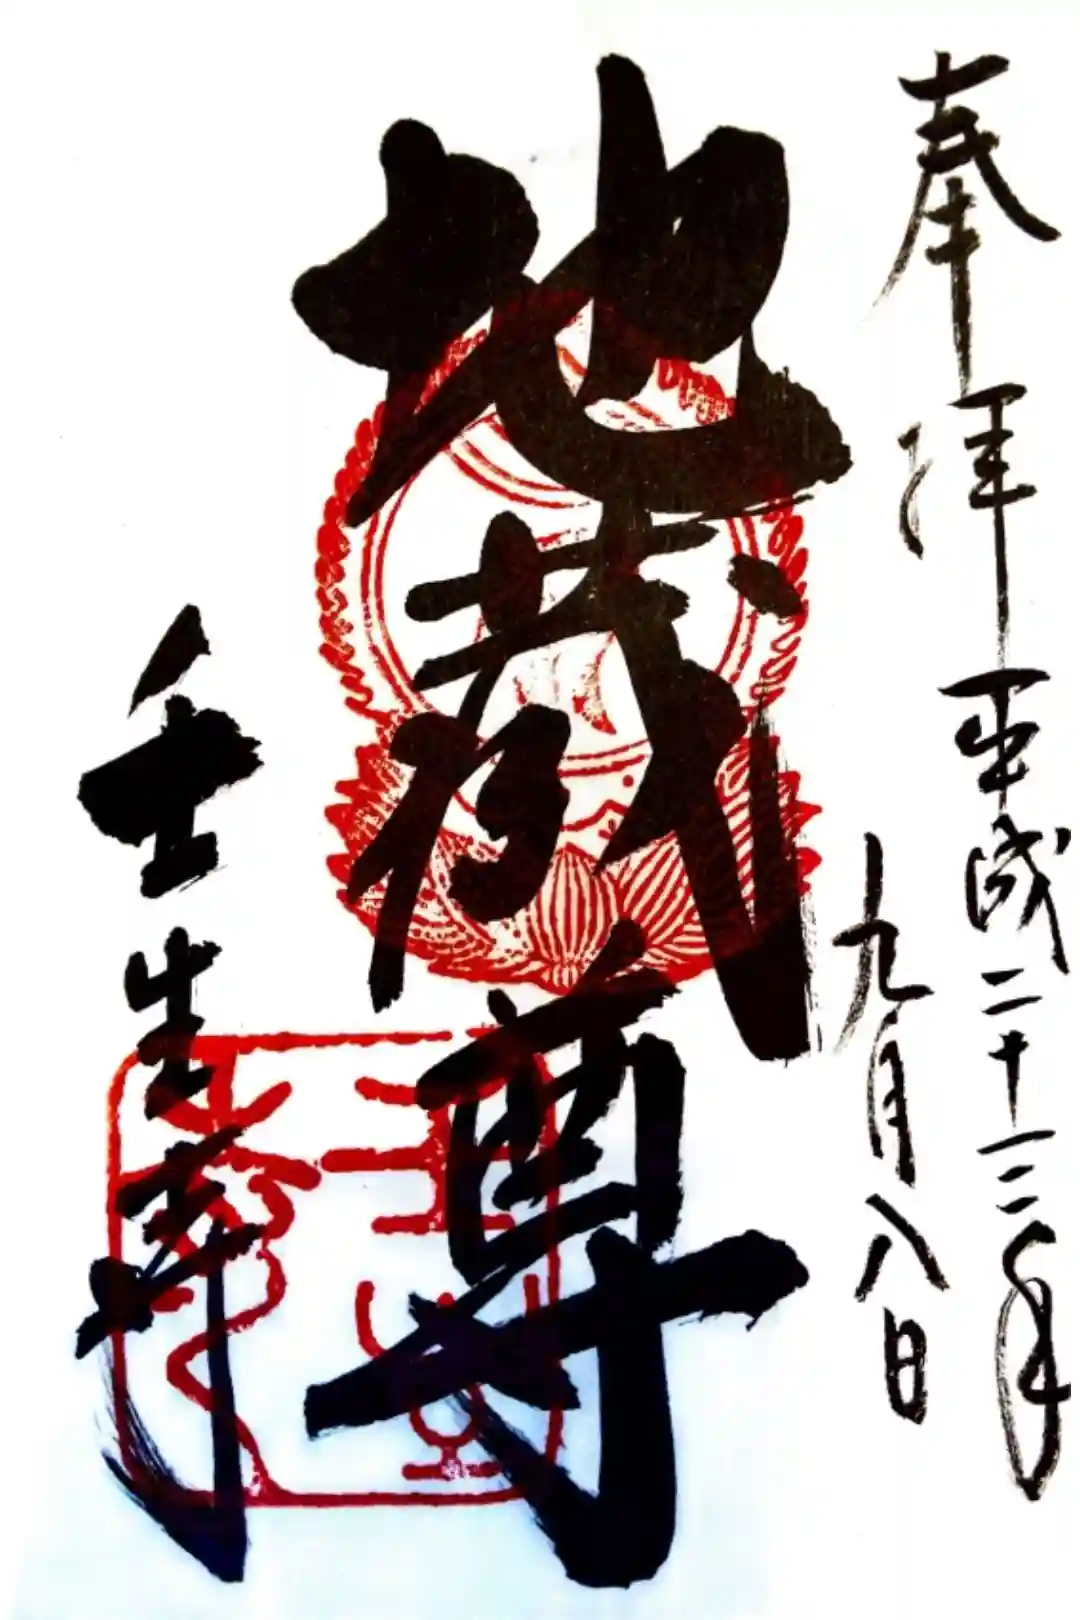 奉拝
平成二十三年
九月八日
地蔵尊
壬生寺